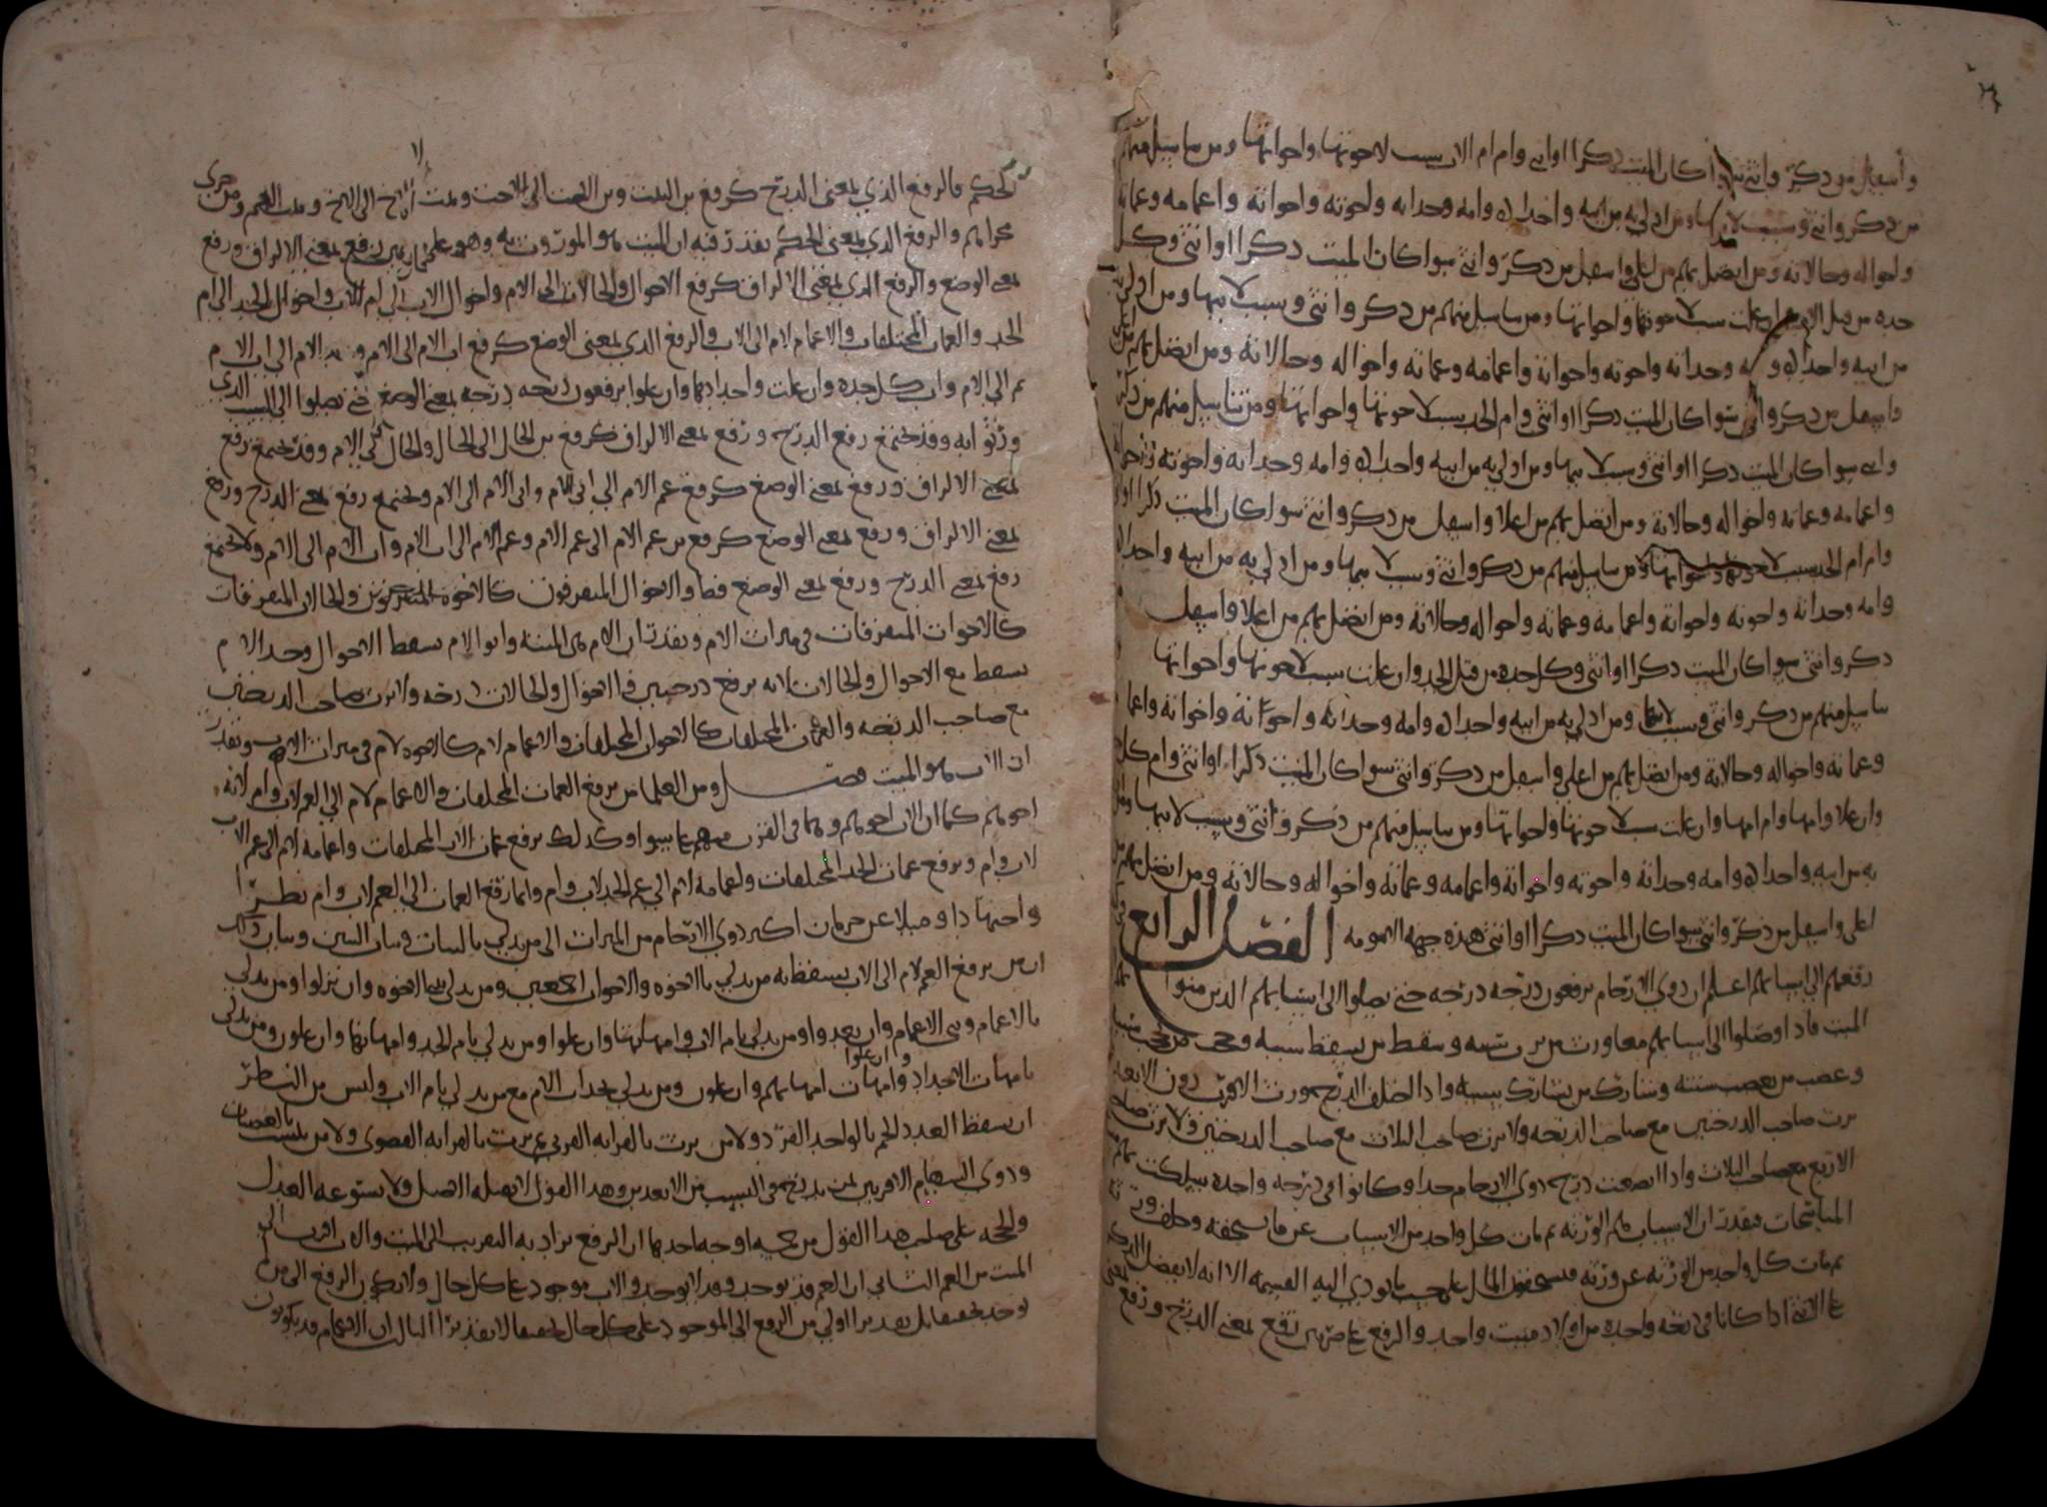 واسفل من ذكر وانثى سواكان الميت ذكرا اوانثى وام ام الاب بسبب لاخوتها واخواتها ومن تناسل منهم
من ذكر وانثى وبسبب لابيها ومن ادلى به من ابيه واجداده وامه وجداته واخوته واخواته واعمامه وعماته
واخواله وخالاته ومن اتصل بهم من اعلى واسفل من ذكر وانثى سواكان الميت ذكرا اوانثى وكل
جده من قبل الاب وان علت بسبب لاخوتها واخواتها ومن تناسل منهم من ذكر وانثى وبسبب لابيها ومن ادلى به
من ابيه واجداده وامه وجداته واخوته واخواته واعمامه وعماته واخواله وخالاته ومن اتصل بهم من اعلى
واسفل من ذكر وانثى سواكان الميت ذكرا اوانثى وام الجد بسبب لاخوتها واخواتها ومن تناسل منهم من ذكر
وانثى سواكان الميت ذكرا اوانثى وبسبب لابيها ومن ادلى به من ابيه واجداده وامه وجداته واخوته واخواته
واعمامه وعماته واخواله وخالاته ومن اتصل بهم من اعلا واسفل من ذكر وانثى سواكان الميت ذكرا اوانثى
وام ام الجد بسبب لاخوتها واخواتها ومن تناسل منهم من ذكر وانثى وبسبب لابيها ومن ادلى به من ابيه واجداده
وامه وجداته واخوته واخواته واعمامه وعماته واخواله وخالاته ومن اتصل بهم من اعلا واسفل
ذكر وانثى سواكان الميت ذكرا اوانثى وكل جده من قبل الجد وان علت بسبب لاخوتها واخواتها
تناسل منهم من ذكر وانثى وبسبب لابيها ومن ادلى به من ابيه واجداده وامه وجداته واخواته واخوانه واعما
وعماته واخواله وخالاته ومن اتصل بهم من اعلى واسفل من ذكر وانثى سواكان الميت ذكرا اوانثى وام كل
وان علا وامها وام امها وان علت بسبب لاخوتها واخواتها ومن تناسل منهم من ذكر وانثى وبسبب لابيها
به من ابيه واجداده وامه وجداته واخوته واخواته واعمامه وعماته واخواله وخالاته ومن اتصل بهم من
اعلى واسفل من ذكر وانثى سواكان الميت ذكرا اوانثى هذه جهه الامومه الفصل الرابع
رفعهم الى اسبابهم اعلم ان ذوي الارحام يرفعون درجه درجه حتى يصلوا الى اسبابهم الذين
الميت فاذا وصلوا الى اسبابهم ورث من يرث سببه وسقط من يسقط سببه وحجب من حجب
وعصب من يعصب سببه وشارك من يشارك سببه واذا اختلف الدرج ورث الاقرب دون الابعد
يرث صاحب الدرجتين مع صاحب الدرجه ولا يرث صاحب الثلاث مع صاحب الدرجتين ولا يرث صاحب
الاربع مع صاحب الثلاث واذا درج ذوي الارحام وكانوا في درجه واحده سلكت بهم
فتقدر ان الاسباب هم الورثه ثم مات كل واحد من الاسباب عن ما يستحقه وخلف ورثه
ثم مات كل واحد من الورثه عن ورثه المال على حسب ما تودي اليه القسمه الا انه لا يفضل الذكر
على الانثى اذا كانا في درجه واحده من اولاد ميت واحد والرفع على ضربين رفع بمعنى الدرج ورفع بمعنى
الحكم فالرفع الذي بمعنى الدرج كرفع بنت البنت الى البنت وبنت الاخت الى الاخت وبنت الاخ الى الاخ وبنت العم ومن جرى
مجراهم والرفع الذي بمعنى الحكم تقدر فيه ان الميت هو الموروث به وهو على ضربين رفع بمعنى الالراف ورفع
بمعنى الوضع والرفع الذي بمعنى الالراف كرفع الاخوال والخالات الى الام واخوال الاب الى ام الاب واخوال الجد الى ام
الجد والعمات المختلفات والاعمام لام الى الاب والرفع الذي بمعنى الوضع كرفع اب الام الى الام الى اب الام
ثم الى الام واب كل جده وان علت واجدادها وان علوا يرفعون درجه درجه بمعنى الوضع حتى يصلوا الى السبب الذي
ورثوا به وقد يجتمع رفع الدرج ورفع بمعنى الالراف كرفع بن الخال الى الخال والخال الى الام وقد يجتمع رفع
بمعنى الالراف ورفع بمعنى الوضع كرفع عم الام الى ابي الام وابي الام الى الام ويجتمع رفع بمعنى الدرج ورفع
بمعنى الالراف ورفع بمعنى الوضع كرفع بن عم الام الى عم الام وعم الام الى اب الام واب الام الى الام ولا يجتمع
رفع بمعنى الدرج ورفع بمعنى الوضع فصل والاخوال المتفرقون كالاخوه المتفرقين والخالات المتفرقات
كالاخوات المتفرقات في ميراث الام وتقدر ان الام هي الميته وابو الام يسقط الاخوال وجد الام
يسقط مع الاخوال والخالات لانه يرفع درجتين والاخوال والخالات درجه ولا يرث صاحب الدرجتين
مع صاحب الدرجه والعمات المختلفات كالاخوات المختلفات والاعمام لام كالاخوه لام في ميراث الاب وتقدر
ان الاب هو الميت فصل ومن العلما من يرفع العمات المختلفات والاعمام لام الى العم لاب وام لانه
اخوهم كما ان الاب اخوهم وهما في القرب منهم على سوا وكذلك يرفع عمات الاب المختلفات واعمامه لام الى عم الاب
لاب وام ويرفع عمات الجد المختلفات واعمامه لام الى عم الجد لاب وام وانما رفع العمات الى العم لاب وام نظرا
واجتهادا وميلا عن حرمان اكثر ذوي الارحام من الميراث الى من يدلي بالبنات وبنات البنين وبيان ذلك
ان من يرفع العم لام الى الاب يسقط به من يدلي بالاخوه والاخوات اجمعين ومن يدلي ببني الاخوه وان نزلوا ومن يدلي
بالاعمام وبني الاعمام وان بعدوا ومن يدلي بام الاب وامهاتها وان علوا ومن يدلي بام الجد وامهاتها وان علون ومن يدلي
بامهات الاجداد وان علوا وامهات امهاتهم وان علون ومن يدلي بجدات الام مع من يدلي بام الاب وليس من النظر
ان يسقط العدد الجم بالواحد الفرد ولا من يرث بالقرابه القربى بمن يرث بالقرابه القصوى ولا من بالعصبات
وذوي السهام الاقربين لمن يدرج في السبب من الابعدين وهذا القول لا يقبله العقل ولا يستوعه العدل
والحجه على صاحب هذا القول من خمسه اوجه احدها ان الرفع يراد به التقريب الى الميت والاب اقرب الى
الميت من العم الثاني ان العم قد يوجد وقد لا يوجد والاب موجود على كل حال ولا يكون الرفع الى من
يوجد تحقيقا بل تقديرا اولى من الرفع الى الموجود على كل حال تحقيقا لا تقديرا الثالث ان الاعمام قد يكونون